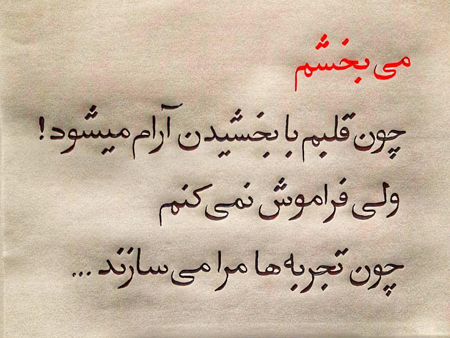 می‌بخشم
چون قلبم با بخشیدن آرام میشود!
ولی فراموش نمی‌کنم
چون تجربه‌ها مرا می‌سازند ...